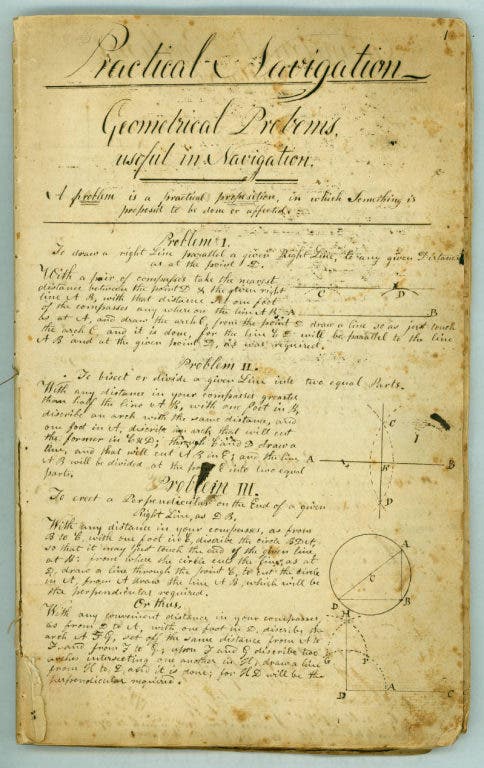 1
Practical Navigation
Geometrical Probems,
useful in Navigation.
A problem is a practical proposition, in which Something is
proposed to be done or affected.
Problem I.
To draw a right Line parallel a given Right Line, to any given Distance
as at the point D.
With a pair of compasses take the nearest
distance between the point D & the given right
line A B, with that distance set one foot
of the compasses any where on the line A B
as at A, and draw the arch C, from the point D draw a line so as just touch
the arch C and it is done, for the line C D will be parallel to the line
A B and at the given point D, as was required.
C D
A B
Problem II.
To bisect or divide a given Line into two equal Parts.
With any distance in your compasses greater
than half the line A B, with one foot in B,
describe an arch with the same distance, and
one foot in A, describe an arch, that will cut
the former in C & D; through C and D draw a
line, and that will cut A B in E; and the line
A B will be divided at the point E into two equal
parts.
C
A E B
D
Problem III.
To erect a Perpendicular on the End of a given
Right Line, as D B,
With any distance in your compasses, as from
B to C, with one foot in C, discribe the circle B D A,
so that it may just touch the end of the given line,
at B: from where the circle cut the line, as at
D, draw a line through the point C, to cut the circle
in A, from A draw the line A B, which will be
the perpendicular required.
A
C
D B
Or thus,
With any convenient distance in your compasses,
as from D to A, with one foot in D, describe the
arch A F G, set off the same distance from A to
F, and from F to G; upon F and G describe two
arches intersecting one another in H; draw a line
from H to D and it is done; for H D will be the
perpendicular required.
H
G F
D A C